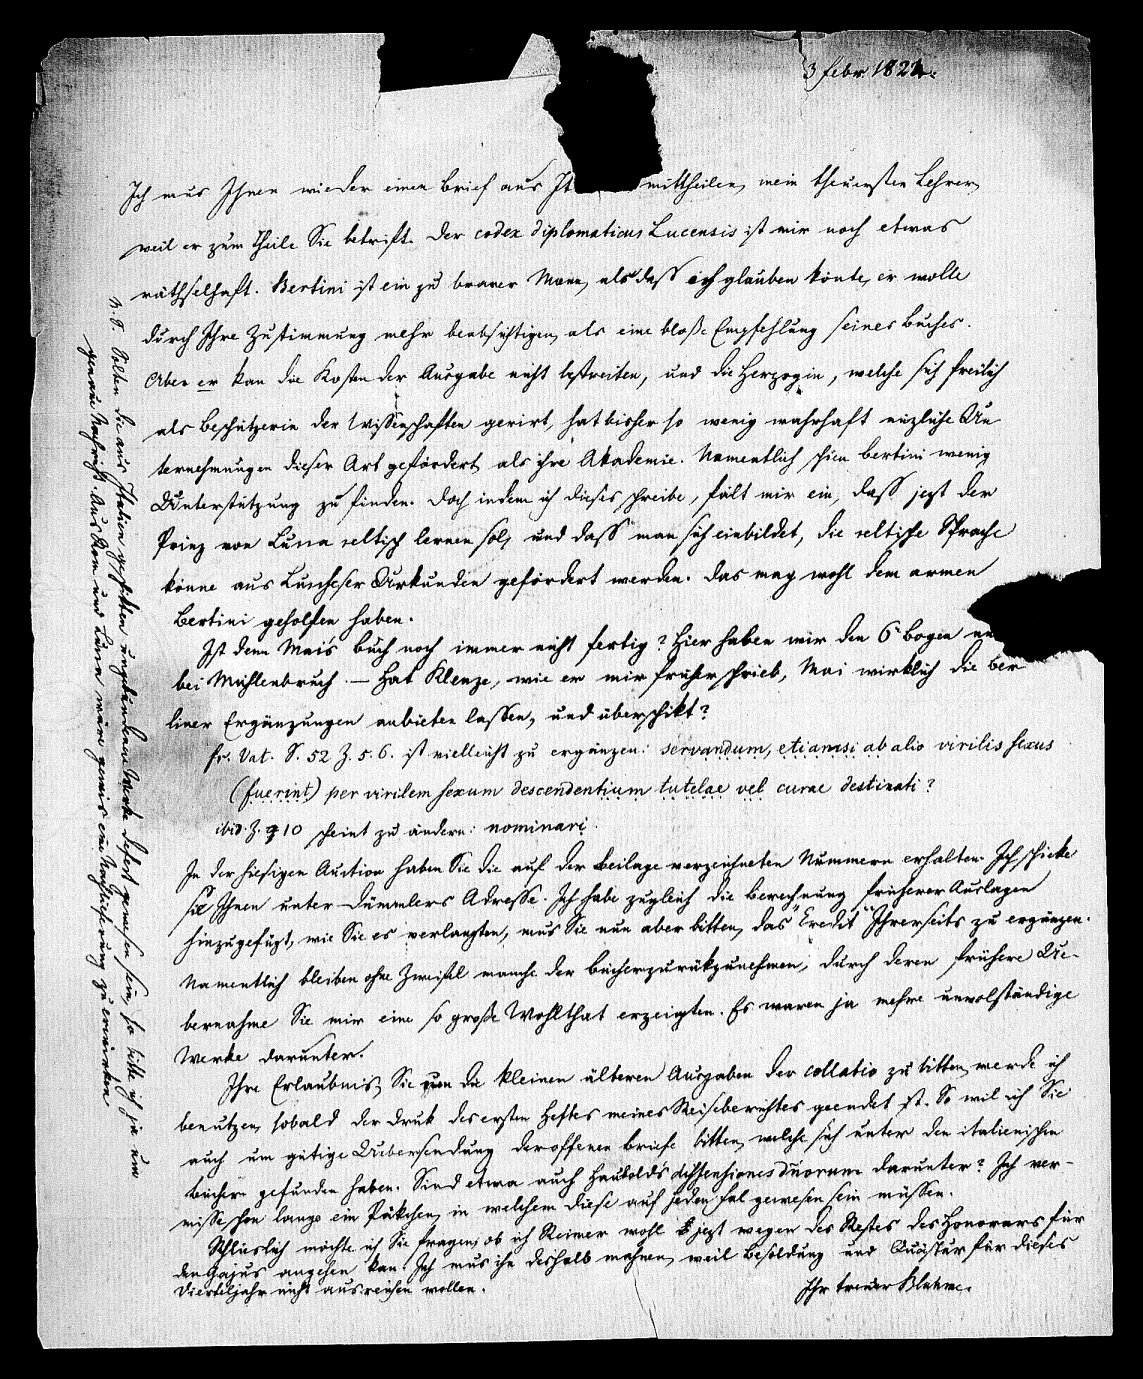 3 febr. 1824.
Ich mus Ihnen wieder einen Brief aus It mittheilen, mein theuersten Lehrer,
weil er zum Theile Sie betrift. Der codex diplomaticus Lucensis ist mir noch etwas
räthselhaft. Bertini ist ein zu braver Mann, als daß ich glauben könte, er wolle
durch Ihre Zustimmung mehr beabsichtigen, als eine bloße Empfehlung seines Buches.
Aber er kan die Kosten der Ausgabe nicht bestreiten, und die Herzogin, welche sich freilich
als Beschützerin der Wissenschaften gerirt, hat bisher so wenig wahrhaft nüzliche Un
ternehmungen dieser Art gefördert, als ihre Akademie. Namentlich schien Bertini wenig
Unterstützung zu finden. Doch indem ich dieses schreibe, fält mir ein, daß jezt der
Prinz von Lucca celtisch lernen sol, und daß man sich einbildet, die celtische Sprache
könne aus Lucheser Urkunden gefördert werden. Das mag wohl dem armen
Bertini geholfen haben.
Ist denn Mais buch noch immer nicht fertig? Hier haben wir den 6 bogen
bei Mühlenbruch. — Hat Klenze, wie er mir früher schrieb, Mai wirklich die Ber
liner Ergänzungen anbieten lassen, und überschikt?
fr. Vat. S. 52 Z. 5. 6. ist vielleicht zu ergänzen: servandum, etiamsi ab alio virilis sexus
(fuerint) per virilem sexum descendentium tutelae vel curae destinati?
ibid. Z. 10 scheint zu ändern: nominari.
In der hiesigen Auction haben Sie die auf der Beilage verzeichneten Nummern erhalten. Ich schicke
sie Ihnen unter Dümmlers Adresse. Ich habe zugleich die Berechnung früherer Auslagen
hinzugefügt, wie Sie es verlangten, mus Sie nun aber bitten, das "Credit" Ihrerseits zu ergänzen.
Namentlich bleiben ohne Zweifel manche der bücher zurükzunehmen, durch deren frühere Ue-
bernahme Sie mir eine so große Wohlthat erzeigten. Es waren ja mehre unvolständige
Werke darunter.
Ihre Erlaubnis, Sie um die kleinen älteren Ausgaben der collatio zu bitten, werde ich
benutzen, sobald der Druk des ersten Heftes meines Reiseberichtes geendet ist. So wil ich Sie
auch um gütige Uebersendung der offenen briefe bitten, welche sich unter den italienischen
büchern gefunden haben. Sind etwa auch Haubolds dissensiones duorum darunter? Ich ver-
misse schon lange ein Päkchen, in welchem diese auf jeden fal gewesen sein müssen.
Schlüslich möchte ich Sie fragen, ob ich Reimer wohl jezt wegen des Restes des Honorars für
den Gajus angehen kan. Ich mus ihn deshalb mahnen, weil Besoldung und Quästur für dieses
Vierteljahr nicht ausreichen wollen.
Ihr treuer Bluhme.
N. S. Solten die aus Italien geschikten ungebundenen Werke defect gewesen sein, so bitte ich ja um
genaue Nachricht. Aus Rom und Lucca wäre gewis eine Nachlieferung zu erwirken